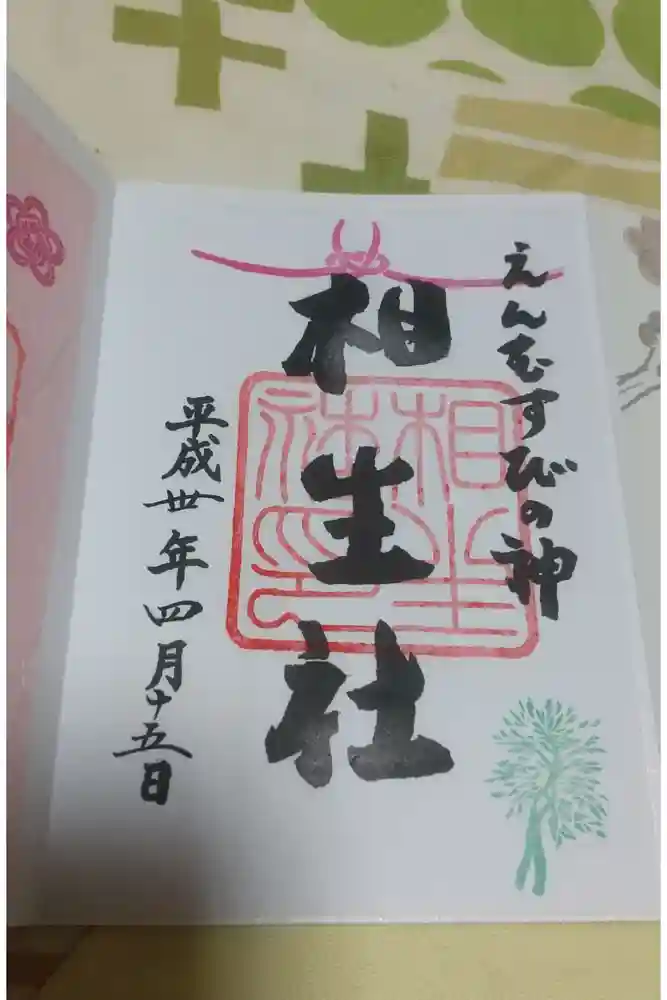 えんむすびの神
相生社
平成卅年四月十五日
相生
神印